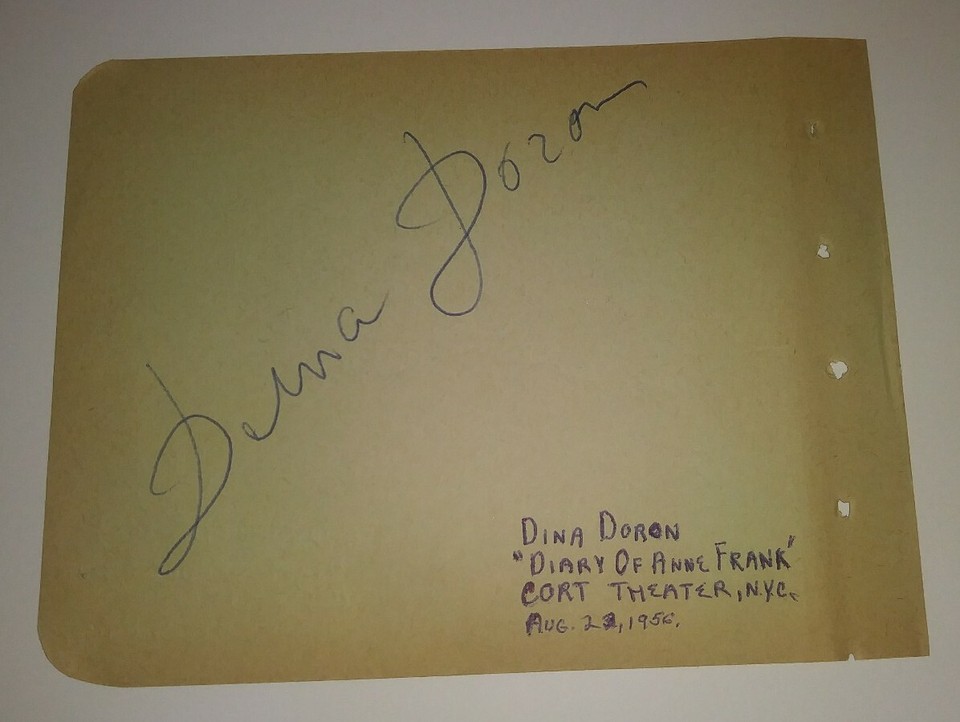 Dina Doron
DINA DORON
"DIARY OF ANNE FRANK"
CORT THEATER, N.Y.C.
AUG. 22, 1956.